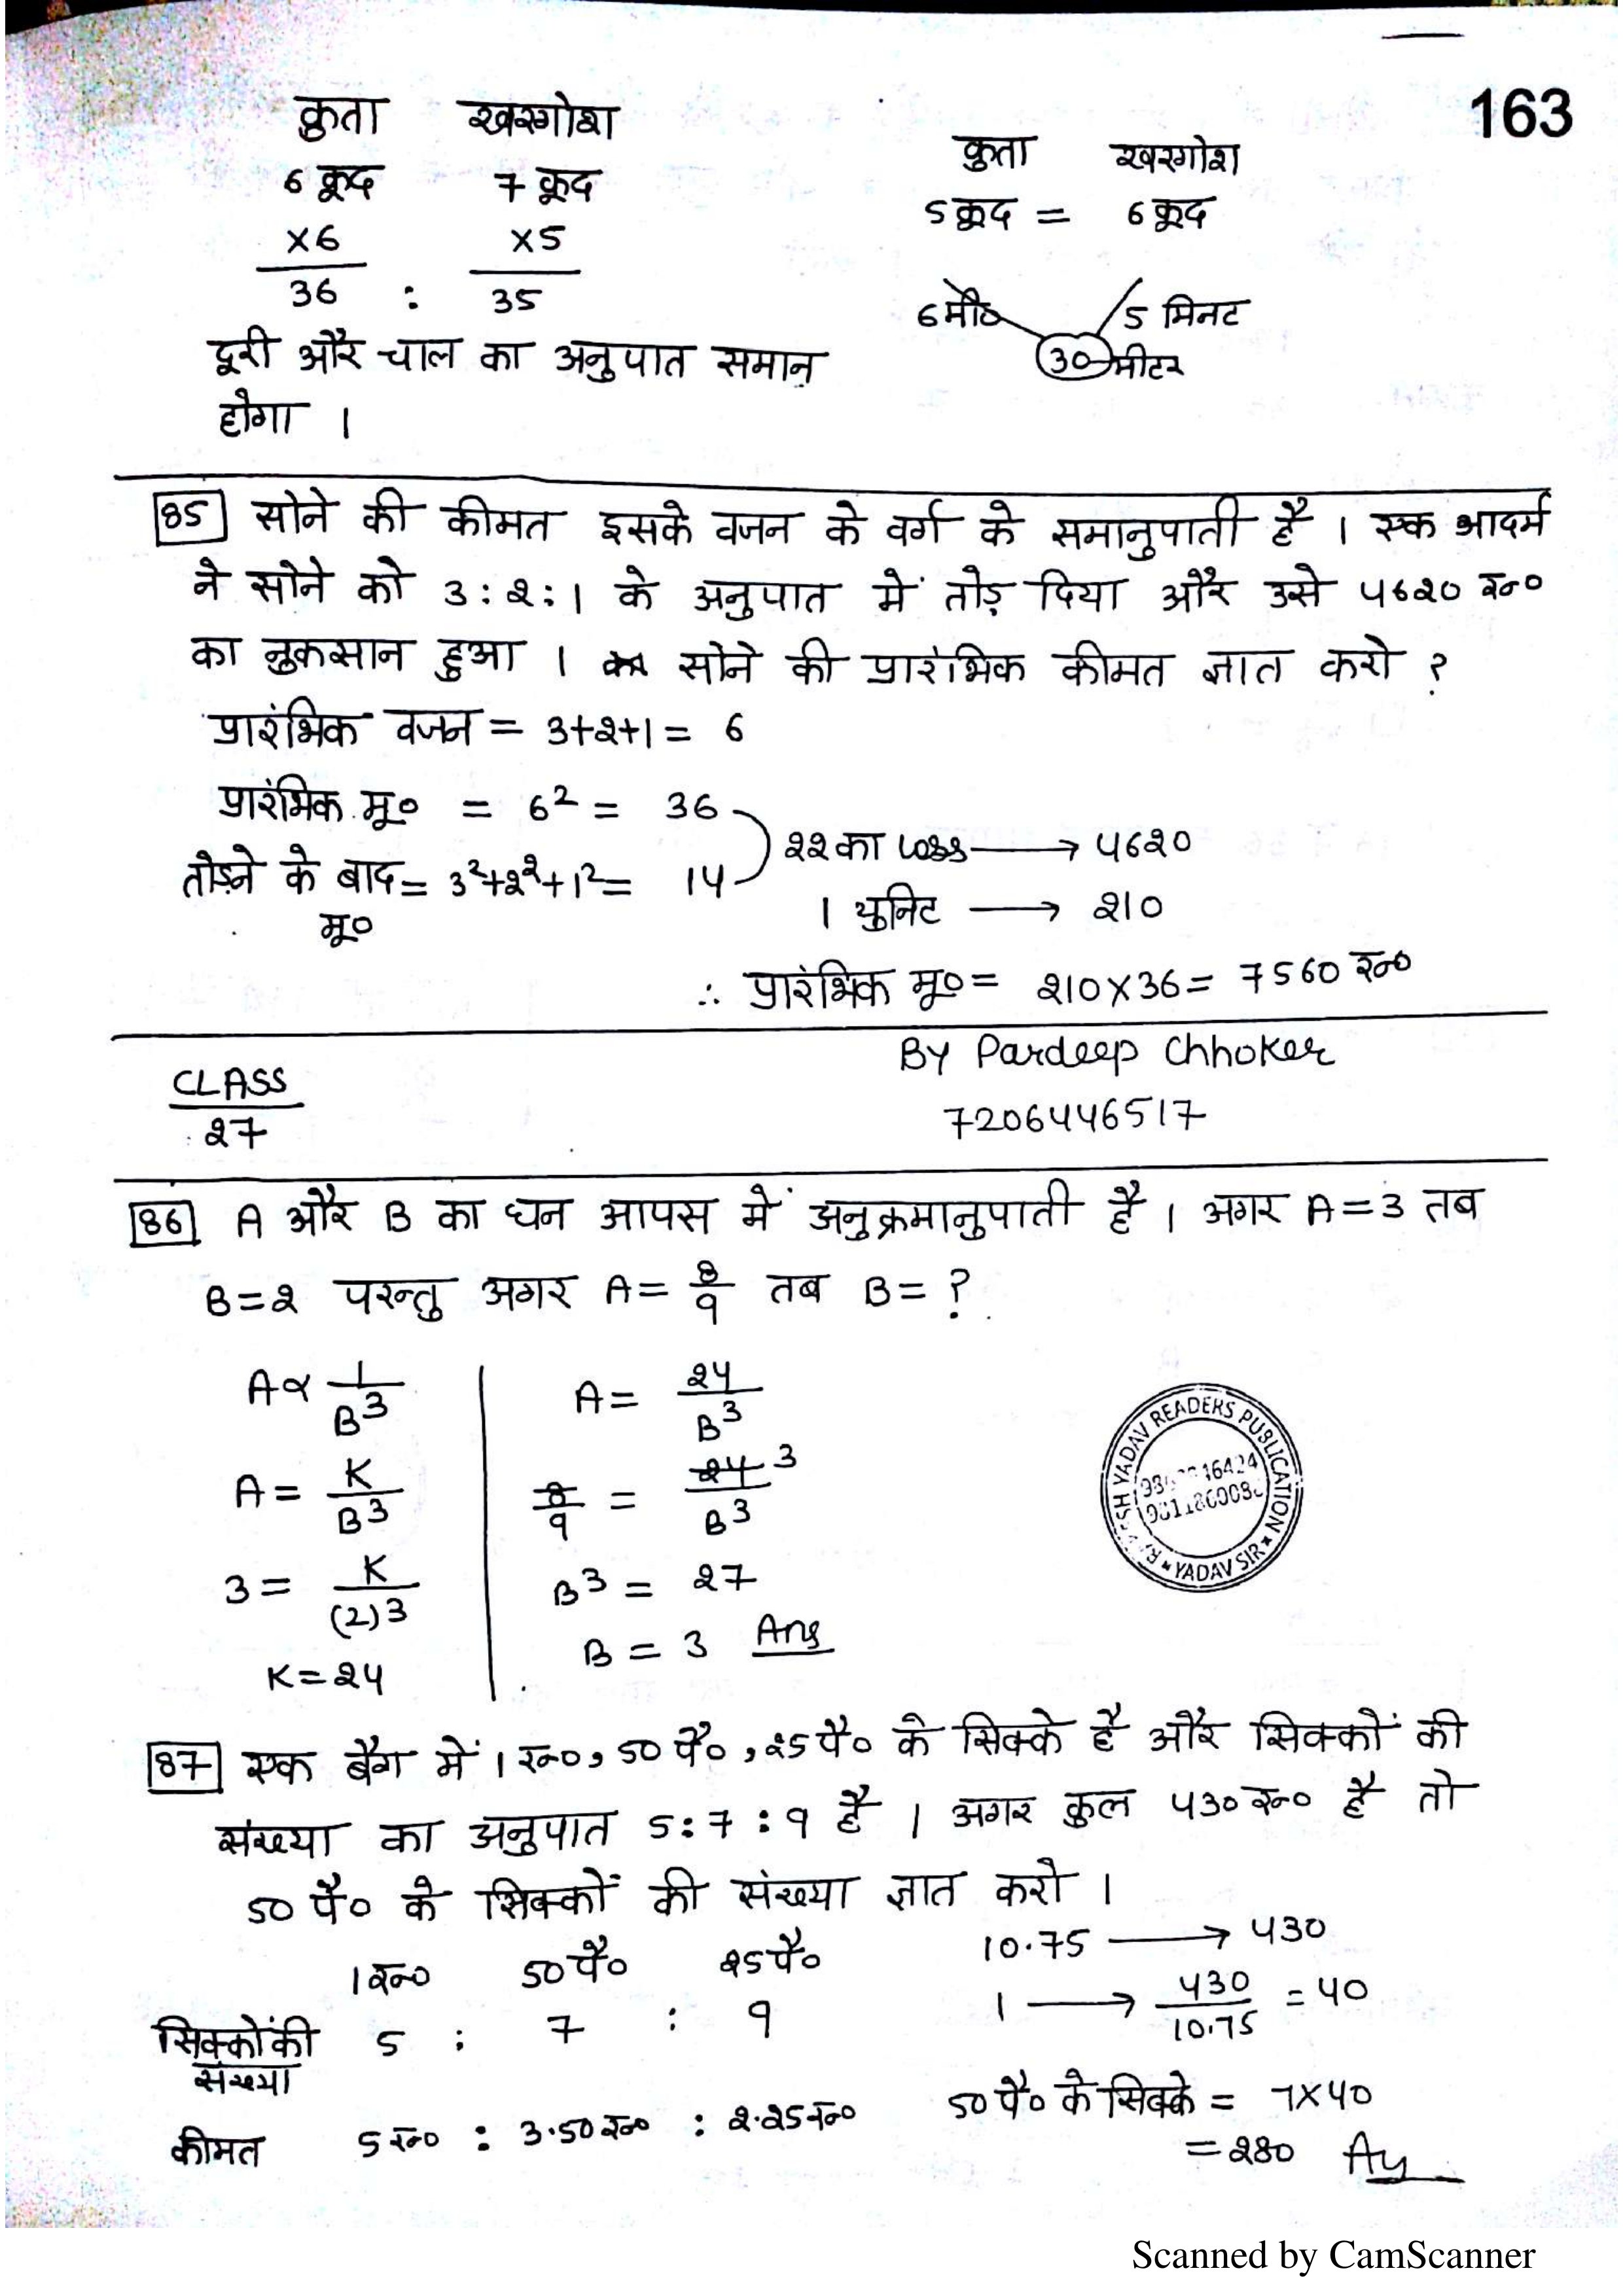 163
कुता खरगोश
6 कूद 7 कूद
×6 ×5
36 : 35
दूरी और चाल का अनुपात समान
होगा ।
कुता खरगोश
5 कूद = 6 कूद
6मी० 5 मिनट
30 मीटर
85 सोने की कीमत इसके वजन के वर्ग के समानुपाती है । एक आदमी
ने सोने को 3:2:1 के अनुपात में तोड़ दिया और उसे 4620 रू०
का नुकसान हुआ । सोने की प्रारंभिक कीमत ज्ञात करो ?
प्रारंभिक वजन = 3+2+1 = 6
प्रारंभिक मू० = 6² = 36
तोड़ने के बाद = 3²+2²+1² = 14
मू०
22 का loss → 4620
1 युनिट → 210
∴ प्रारंभिक मू० = 210×36 = 7560 रू०
CLASS
27
BY Pardeep Chhoker
7206446517
86 A और B का घन आपस में अनुक्रमानुपाती है । अगर A=3 तब
B=2 परन्तु अगर A= 8/9 तब B= ?
A∝ 1/B³
A= K/B³
3= K/(2)³
K=24
A= 24/B³
8/9 = 24/B³ 3
B³ = 27
B = 3 Ans
READERS PUBLICATION
YADAV SIR
87 एक बैग में 1 रू०, 50 पै०, 25 पै० के सिक्के है और सिक्कों की
संख्या का अनुपात 5:7:9 है । अगर कुल 430 रू० है तो
50 पै० के सिक्कों की संख्या ज्ञात करो ।
1रू० 50पै० 25पै०
सिक्कों की 5 : 7 : 9
संख्या
कीमत 5रू० : 3.50रू० : 2.25रू०
10.75 → 430
1 → 430/10.75 = 40
50 पै० के सिक्के = 7×40
=280 Ay
Scanned by CamScanner